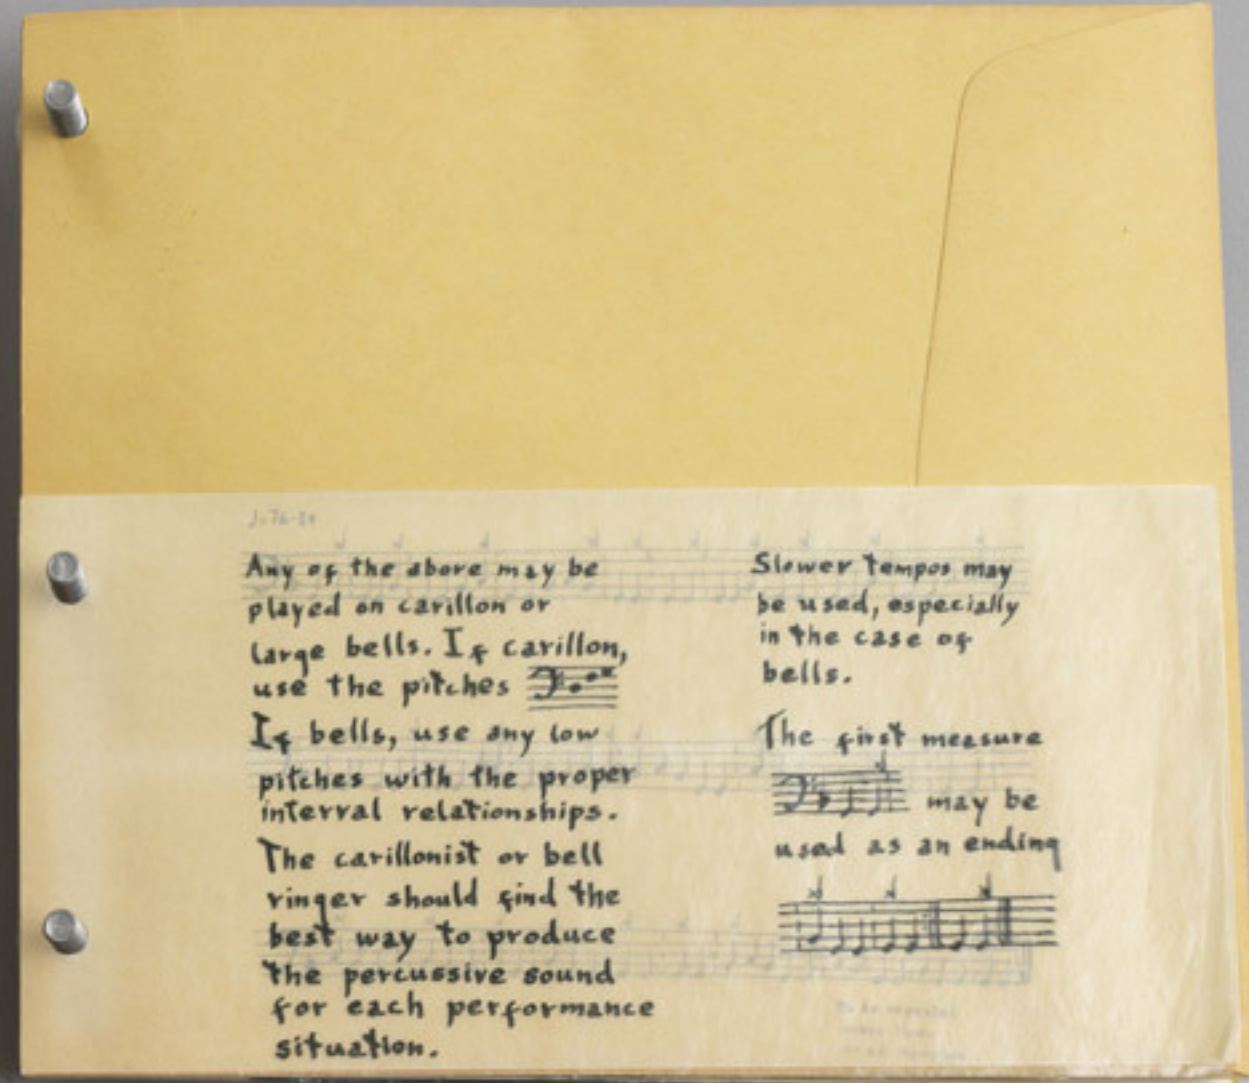 Any of the above may be
played on carillon or
large bells. If carillon,
use the pitches
If bells, use any low
pitches with the proper
interval relationships.
The carillonist or bell
ringer should find the
best way to produce
the percussive sound
for each performance
situation.
Slower tempos may
be used, especially
in the case of
bells.
The first measure
may be
used as an ending